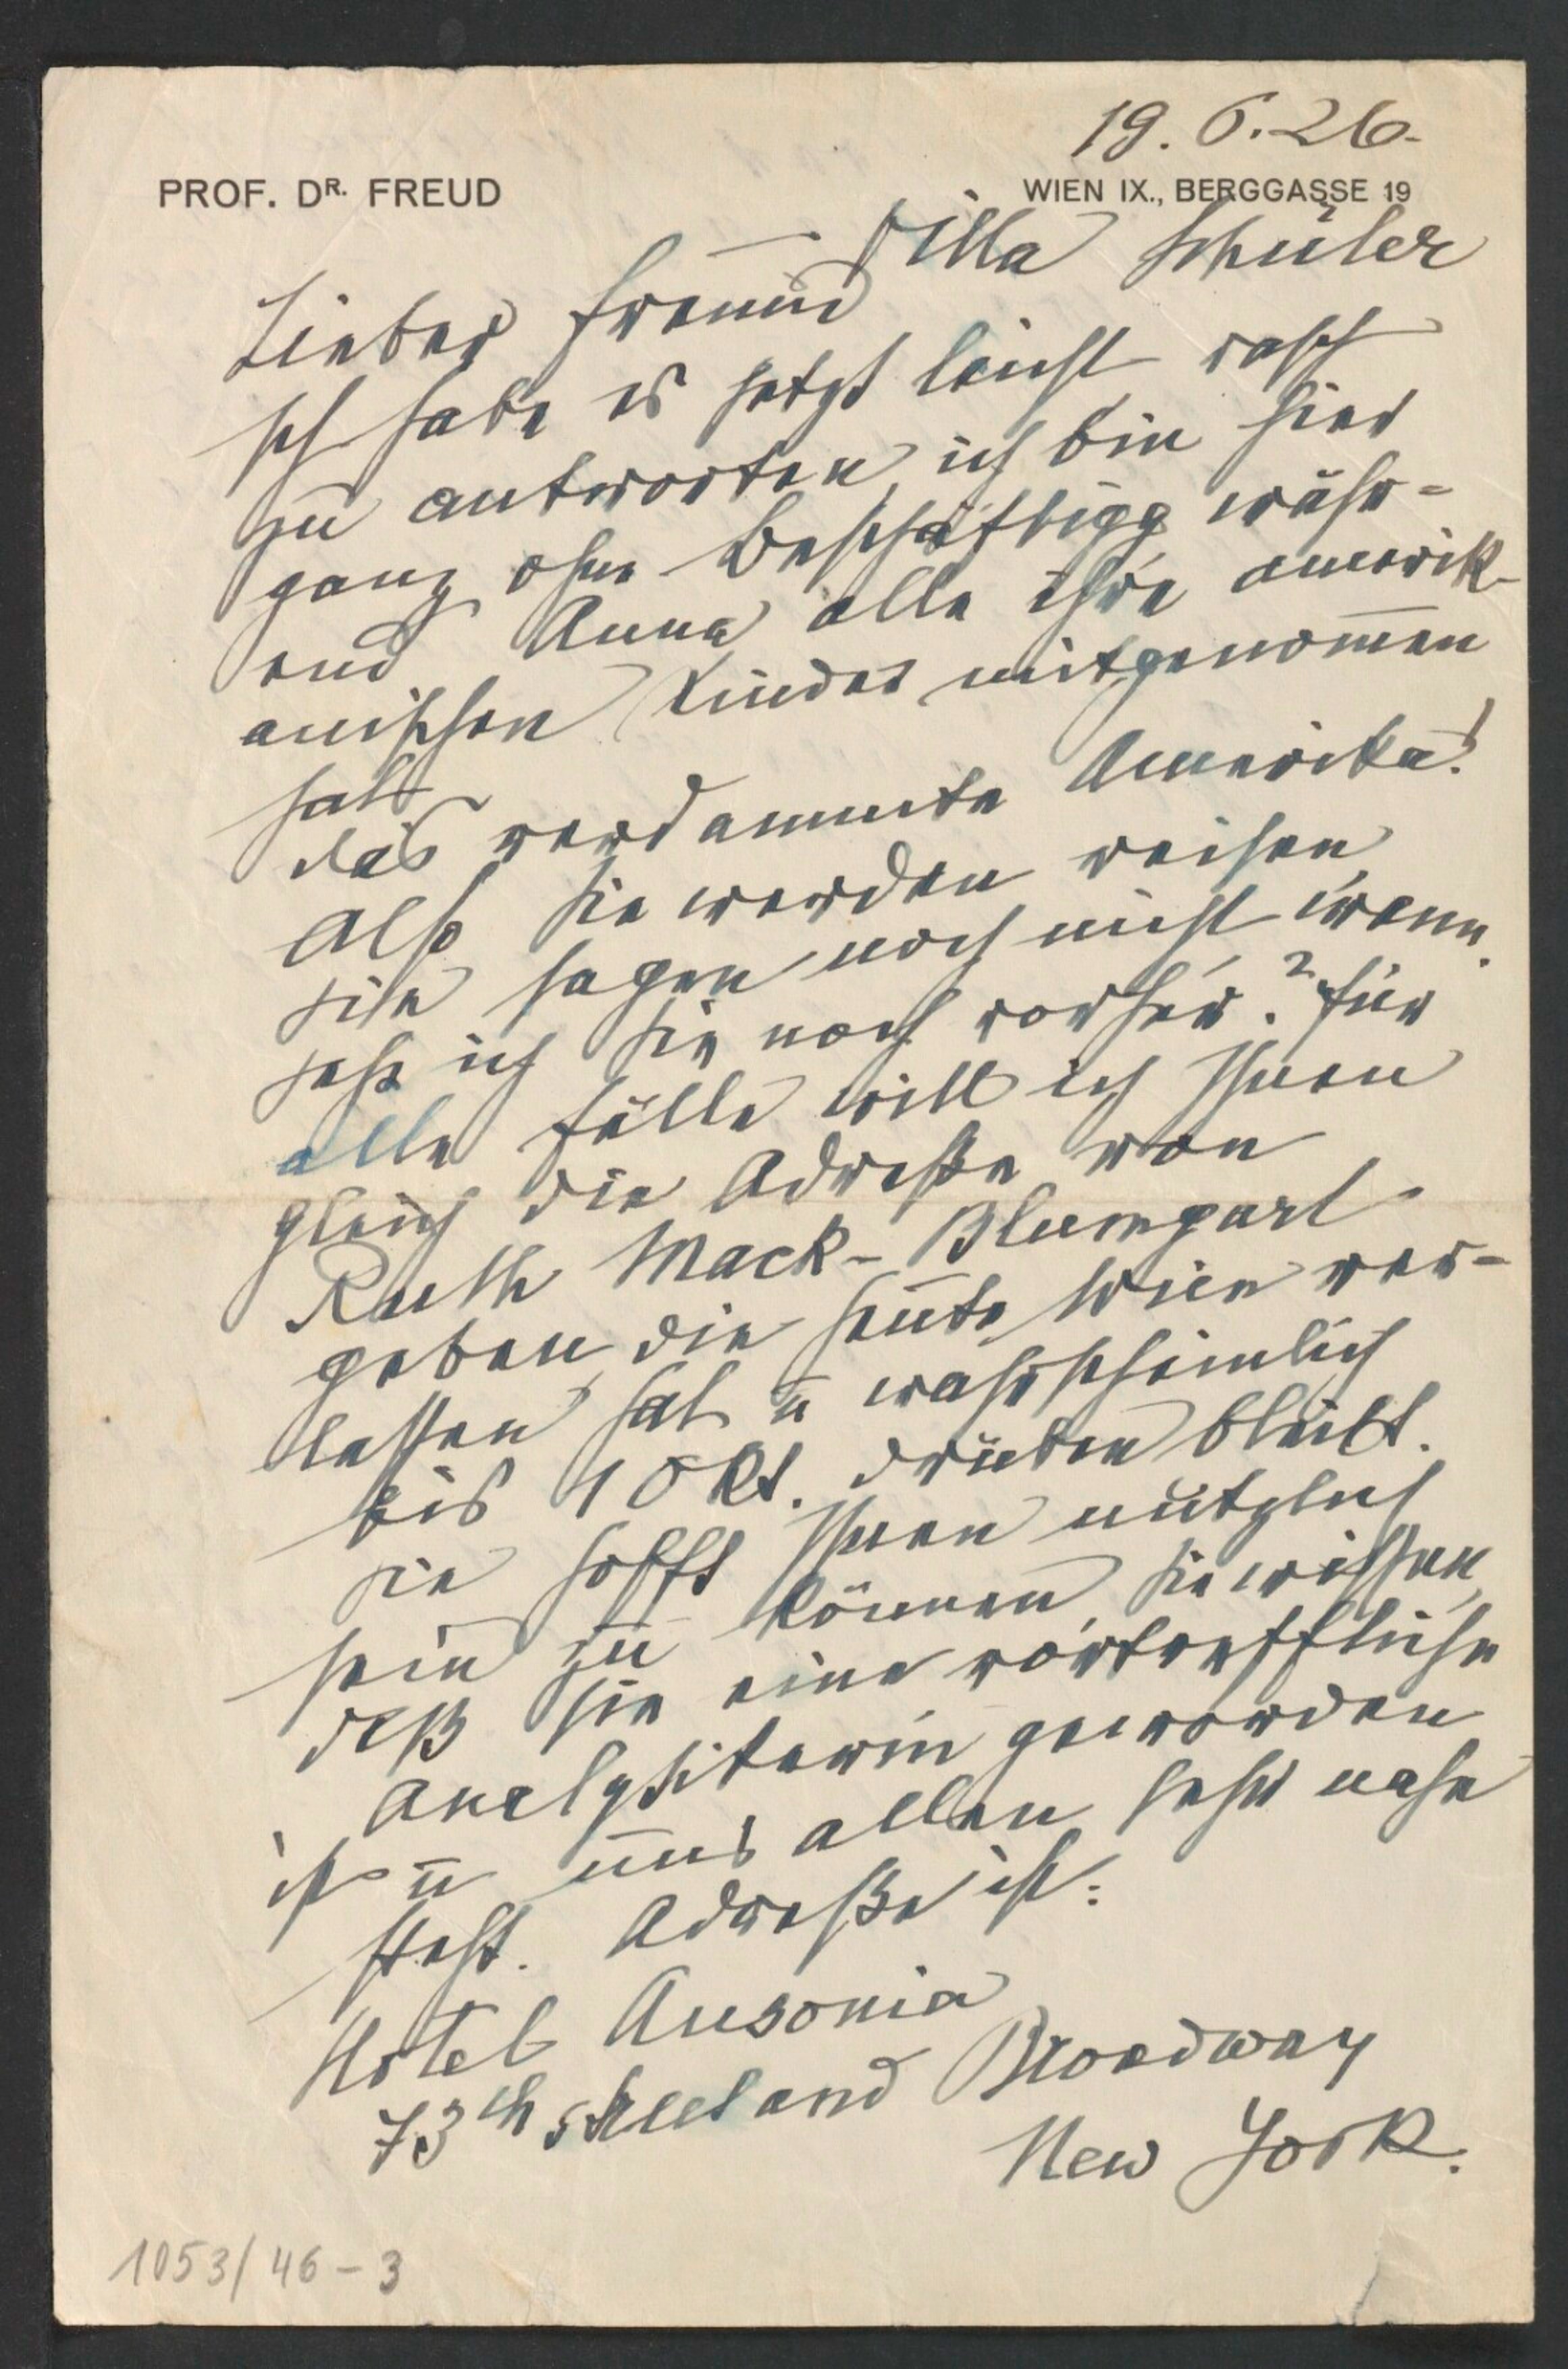 19. 6. 26.
PROF. DR. FREUD
WIEN IX., BERGGASSE 19
Villa Schüler
Lieber Freund
Ich habe es jetzt leicht rasch
zu antworten, ich bin hier
ganz ohne Beschäftigg währ-
end Anna alle ihre amerik-
anischen Kinder mitgenommen
hat.
Das verdammte Amerika!
Also Sie werden reisen,
Sie sagen noch nicht wann.
Seh ich Sie noch vorher? Für
alle Fälle will ich Ihnen
gleich die Adresse von
Ruth Mack-Blumgart
geben, die heute Wien ver-
lassen hat u wahrscheinlich
bis 1 Okt. drüben bleibt.
Sie hofft Ihnen nützlich
sein zu können. Sie wissen,
daß sie eine vortreffliche
Analytikerin geworden
ist u uns allen sehr nahe
steht. Adresse ist:
Hotel Ansonia
73th street and Broadway
New York.
1053/46-3